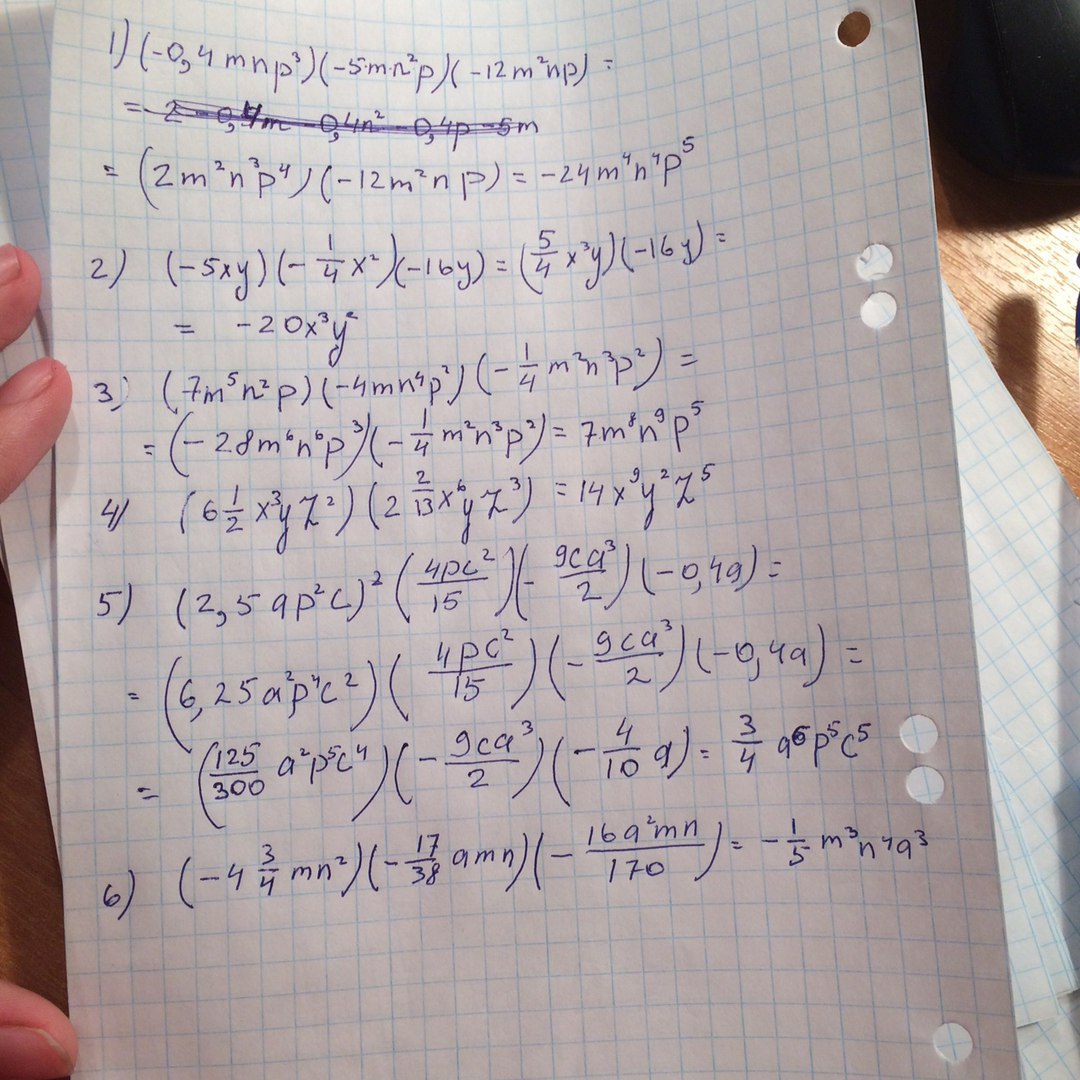 1) (-0,4 mnp³)(-5m·n²p)(-12m²np) =
= 2 - 0,4m - 0,4n² - 0,4p - 5m
= (2m²n³p⁴)(-12m²np) = -24m⁴n⁴p⁵
2) (-5xy)(-1/4 x²)(-16y) = (5/4 x³y)(-16y) =
= -20x³y²
3) (7m⁵n²p)(-4mn⁴p²)(-1/4 m²n³p²) =
= (-28m⁶n⁶p³)(-1/4 m²n³p²) = 7m⁸n⁹p⁵
4) (6 1/2 x³yz²)(2 2/13 x⁶yz³) = 14x⁹y²z⁵
5) (2,5ap²c)²(4pc²/15)(-9ca³/2)(-0,4a) =
= (6,25a²p⁴c²)(4pc²/15)(-9ca³/2)(-0,4a) =
= (125/300 a²p⁵c⁴)(-9ca³/2)(-4/10 a) = 3/4 a⁶p⁵c⁵
6) (-4 3/4 mn²)(-17/38 amn)(-16a²mn/170) = -1/5 m³n⁴a³